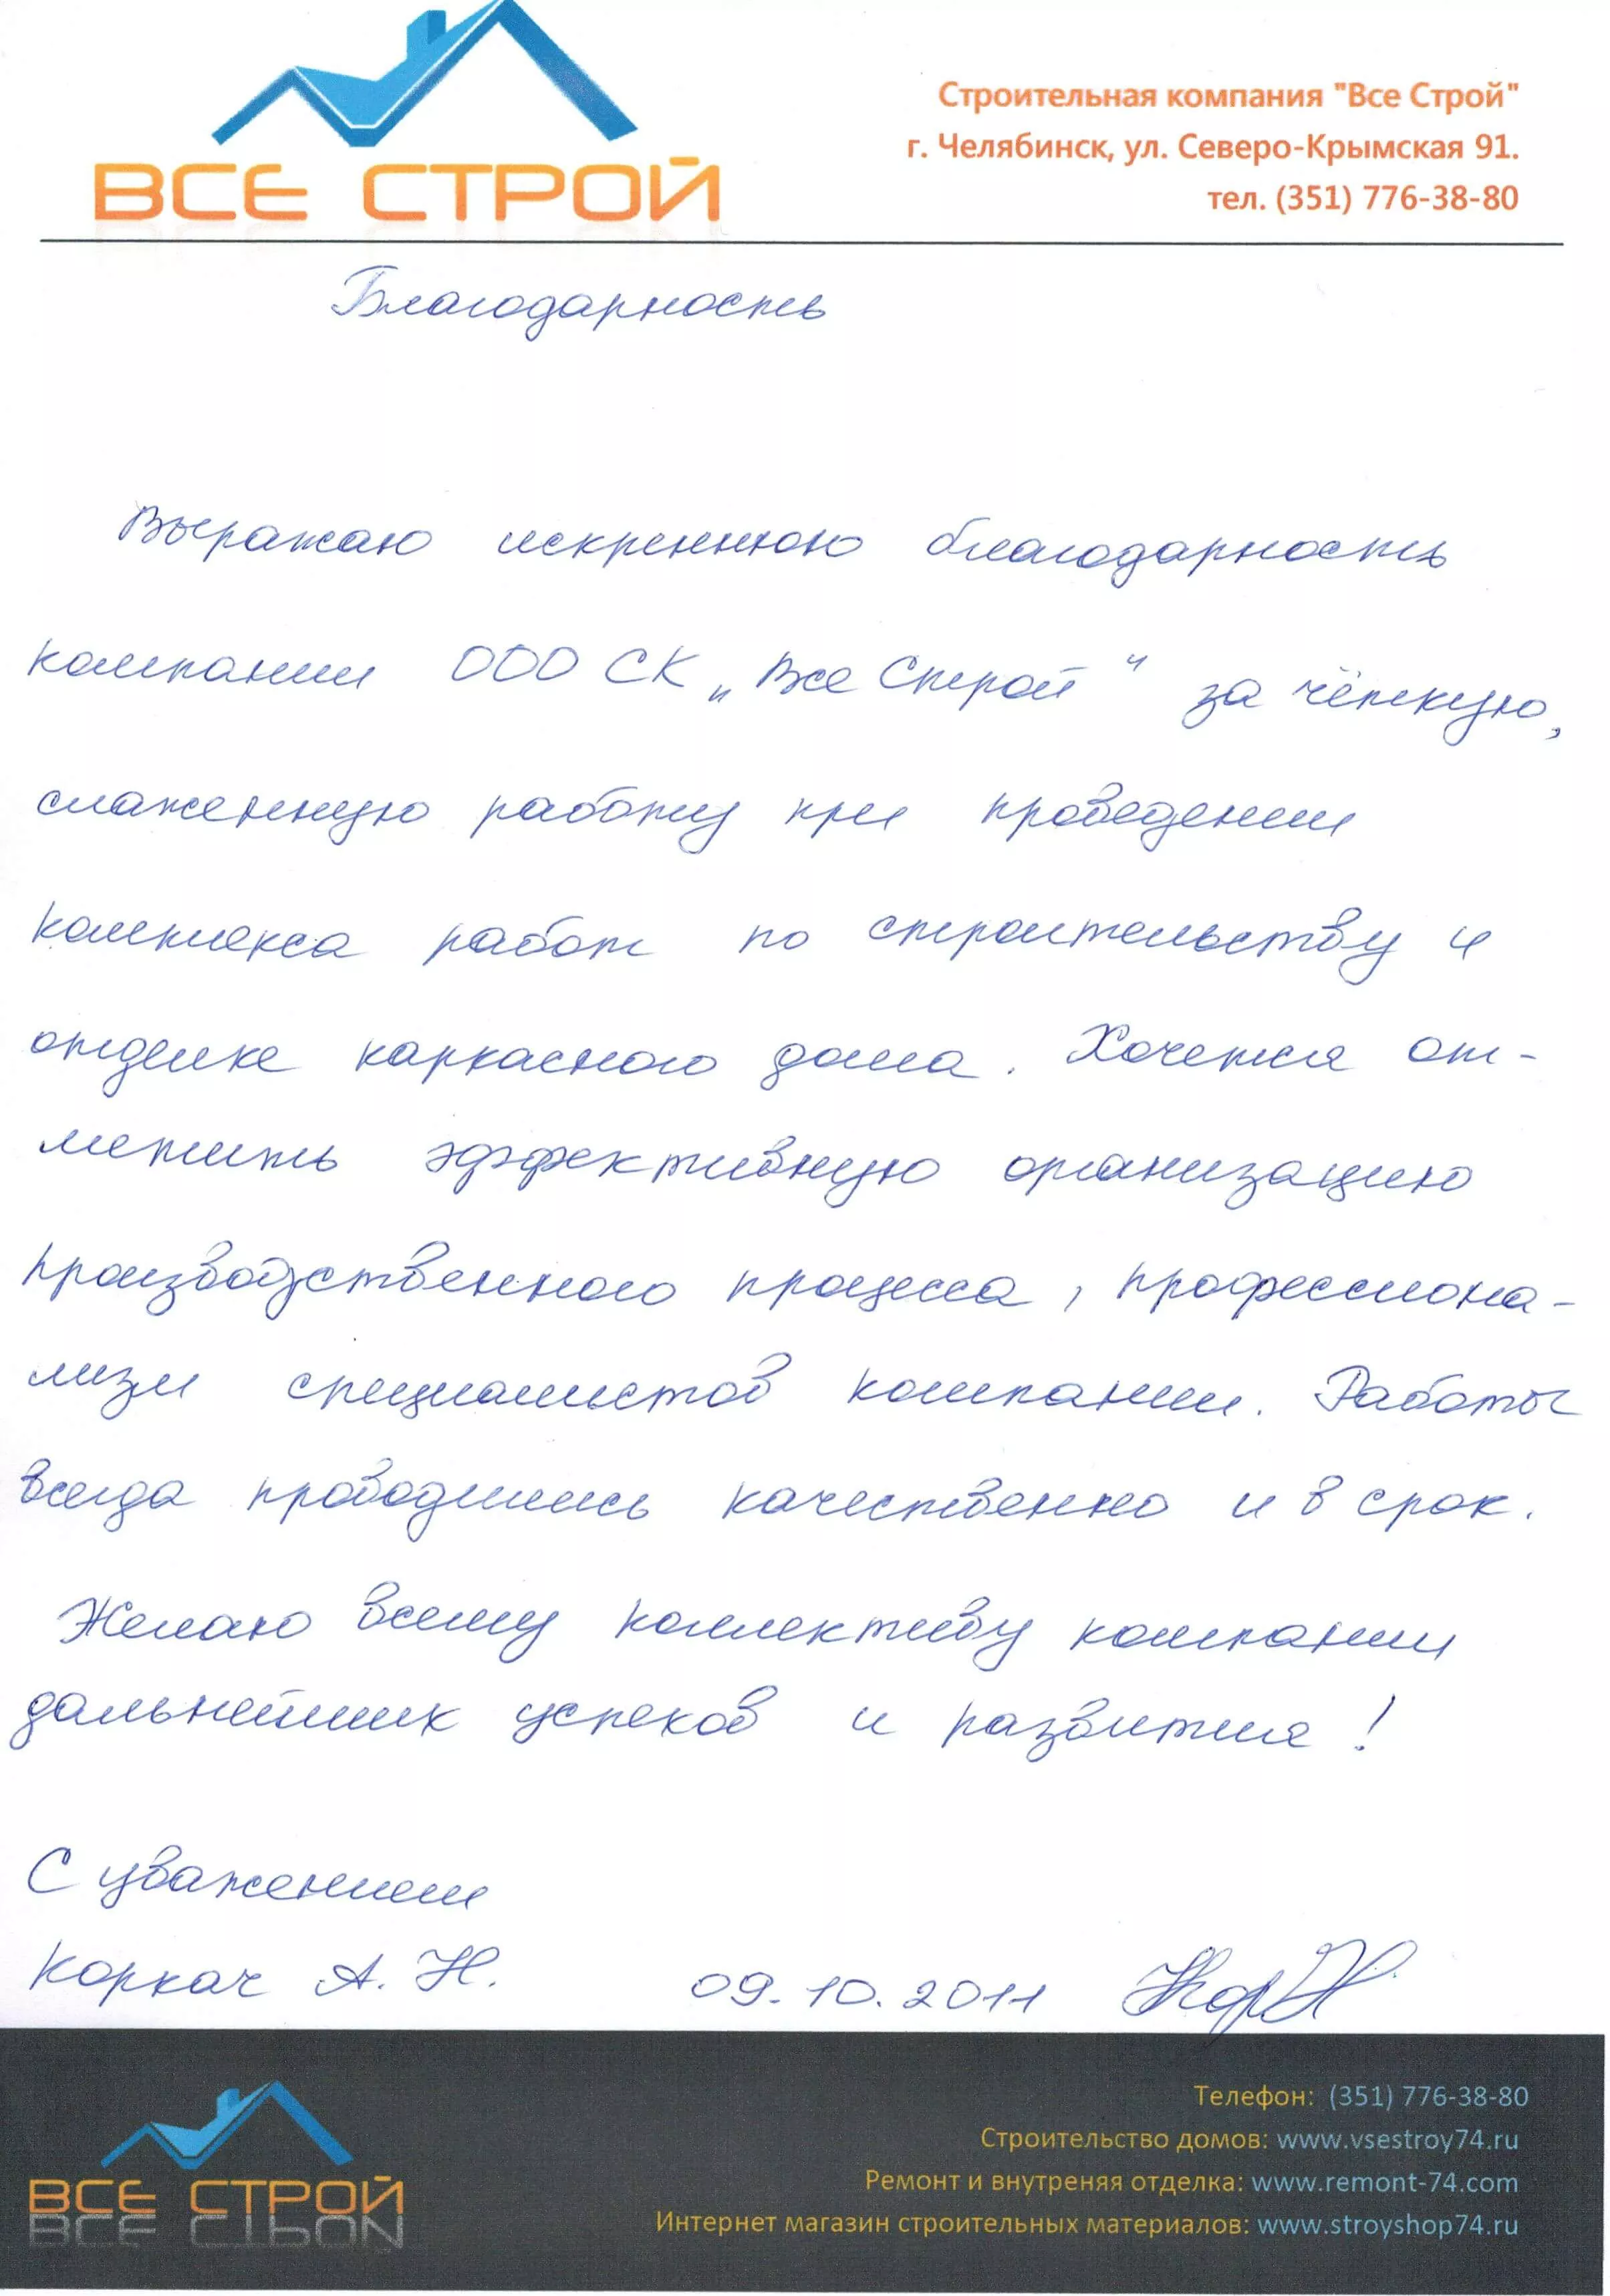 ВСЕ СТРОЙ
Строительная компания "Все Строй"
г. Челябинск, ул. Северо-Крымская 91.
тел. (351) 776-38-80
Благодарность
Выражаю искреннюю благодарность
компании ООО СК „Все Строй" за чёткую,
слаженную работу при проведении
комплекса работ по строительству и
отделке каркасного дома. Хочется от-
метить эффективную организацию
производственного процесса, профессиона-
лизм специалистов компании. Работы
всегда проводились качественно и в срок.
Желаю всему коллективу компании
дальнейших успехов и развития!
С уважением
Коркач А. Н. 09.10.2011
ВСЕ СТРОЙ
Телефон: (351) 776-38-80
Строительство домов: www.vsestroy74.ru
Ремонт и внутреняя отделка: www.remont-74.com
Интернет магазин строительных материалов: www.stroyshop74.ru